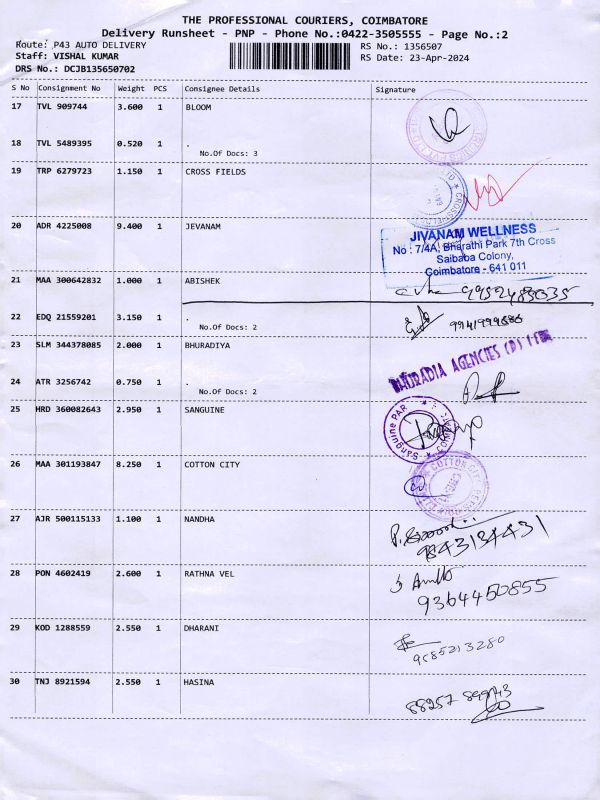 THE PROFESSIONAL COURIERS, COIMBATORE
Delivery Runsheet - PNP - Phone No.:0422-3505555 - Page No.:2
Route: P43 AUTO DELIVERY RS No.: 1356507
Staff: VISHAL KUMAR RS Date: 23-Apr-2024
DRS No.: DCJB135650702
S No Consignment No Weight PCS Consignee Details Signature
17 TVL 909744 3.600 1 BLOOM
18 TVL 5489395 0.520 1 .
No.Of Docs: 3
19 TRP 6279723 1.150 1 CROSS FIELDS
20 ADR 4225008 9.400 1 JEVANAM
JIVANAM WELLNESS
No : 7/4A, Bharathi Park 7th Cross
Saibaba Colony,
Coimbatore - 641 011
21 MAA 300642832 1.000 1 ABISHEK
22 EDQ 21559201 3.150 1 .
No.Of Docs: 2
23 SLM 344378085 2.000 1 BHURADIYA
BHURADIA AGENCIES (P) LTD
24 ATR 3256742 0.750 1 .
No.Of Docs: 2
25 HRD 360082643 2.950 1 SANGUINE
Sanguine PAR
26 MAA 301193847 8.250 1 COTTON CITY
COTTON CITY
27 AJR 500115133 1.100 1 NANDHA
28 PON 4602419 2.600 1 RATHNA VEL
9364450855
29 KOD 1288559 2.550 1 DHARANI
30 TNJ 8921594 2.550 1 HASINA
88257